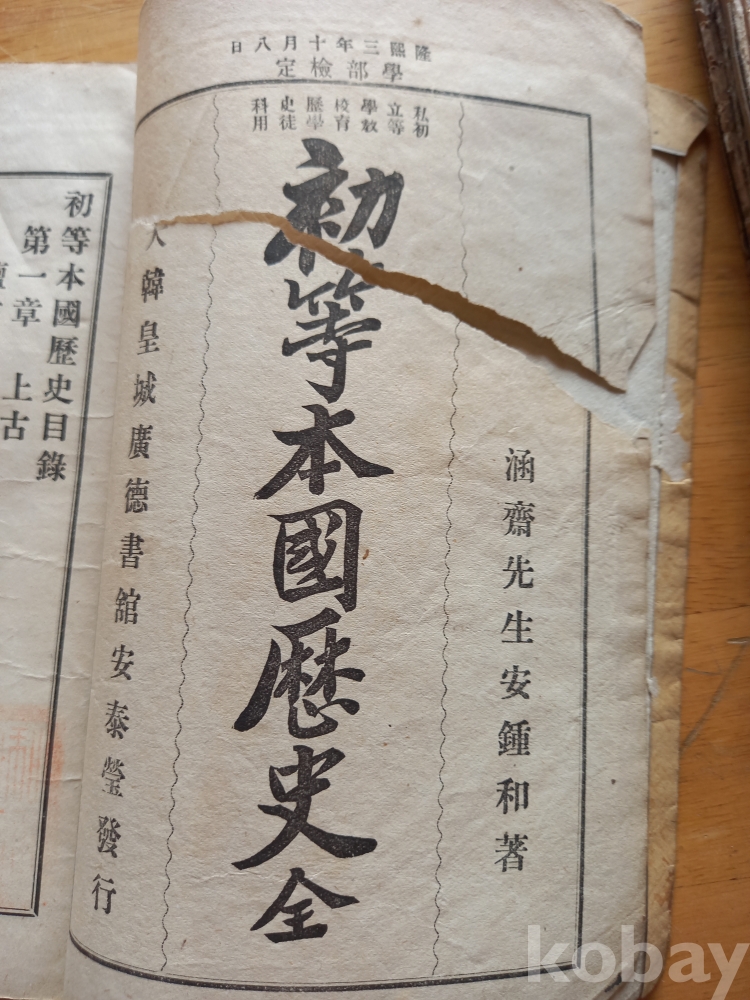 隆熙三年十月八日
學部檢定
私立學校歷史科
初等教育學徒用
涵齋先生安鍾和著
初等本國歷史全
大韓皇城廣德書舘安泰瑩發行
初等本國歷史目錄
第一章 上古
kobay